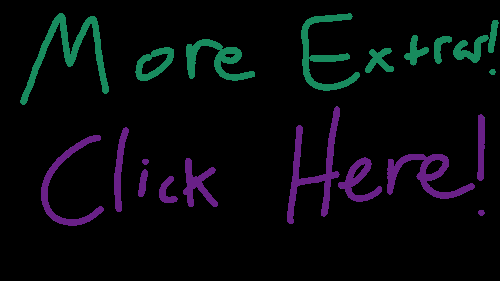 More Extras!
Click Here!